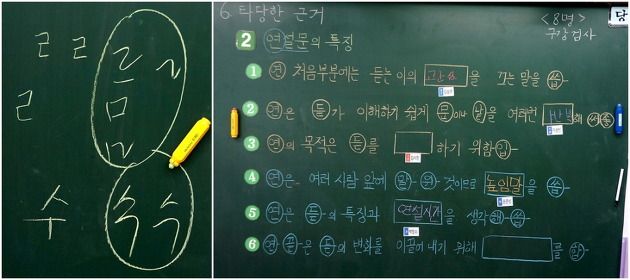 ㄹ ㄹ ㄹ
ㄹ ㅁ
수 수 수
6. 타당한 근거
<8명>
구강검사
당
2 연설문의 특징
1 연 처음부분에는 듣는 이의 을 끄는 말을 씀
2 연은 듣가 이해하기 쉽게 문이나 을 여러번 반복해
3 연의 목적은 듣를 하기 위함
4 연은 여러 사람 앞에 것이므로 높임말을 씀
5 연은 듣의 특징과 연설시간을 생각해 씀
6 연 끝은 듣의 변화를 이끌어 내기 위해 를 함